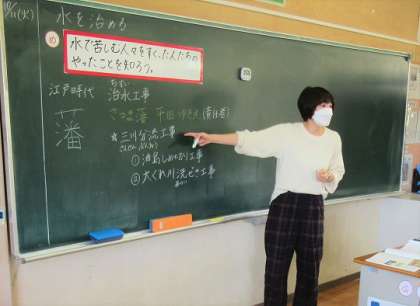 10/11(火)
水を治める
め
水で苦しむ人々をすくった人たちの
やったことを知ろう。
江戸時代
ちすい
治水工事
藩
さつま藩 平田ゆきえ(責任者)
★三川分流工事
さんせんぶんりゅう
①油島しめきり工事
②大ぐれ川洗ぜき工事